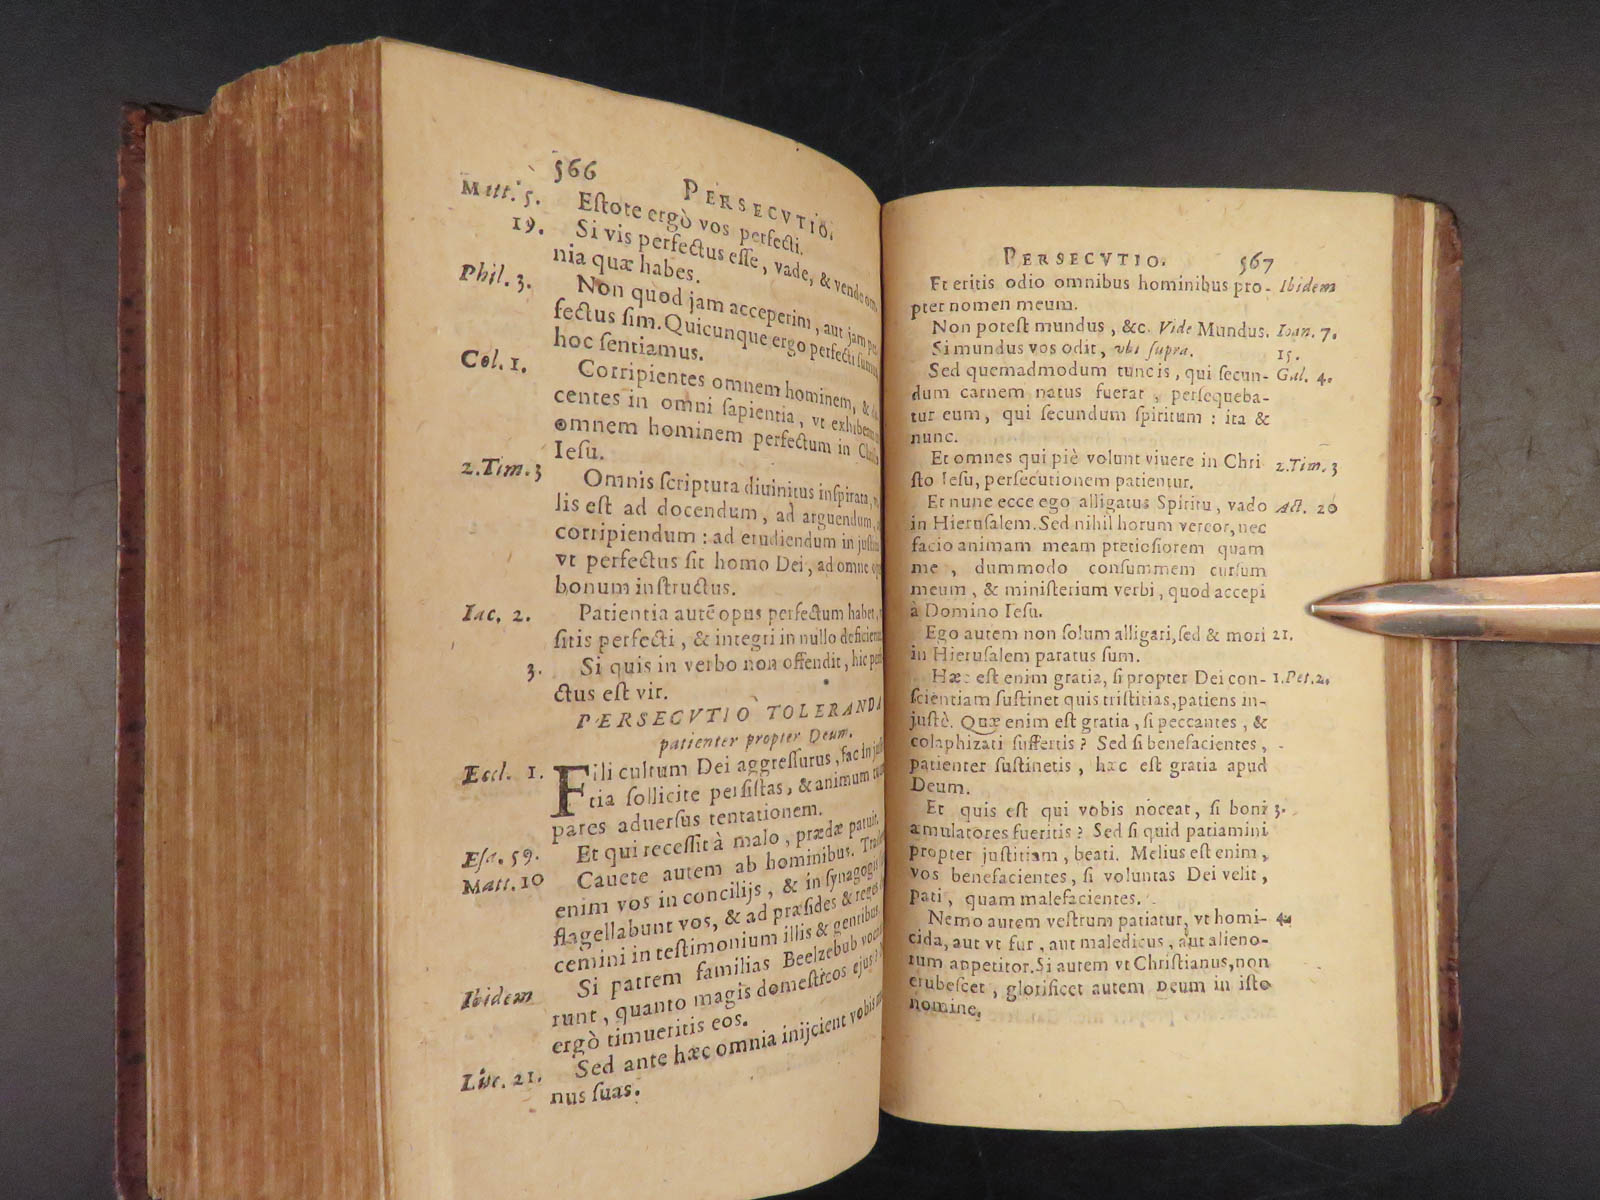 566 PERSECVTIO.
Matt. 5. Eſtote ergò vos perfecti.
19. Si vis perfectus eſſe, vade, & vende om-
nia quæ habes.
Phil. 3. Non quod jam acceperim, aut jam per-
fectus ſim. Quicunque ergo perfecti ſumus
hoc ſentiamus.
Col. 1. Corripientes omnem hominem, &
centes in omni ſapientia, vt exhibea
omnem hominem perfectum in Chriſto
Ieſu.
2. Tim. 3 Omnis ſcriptura diuinitus inſpirata,
lis eſt ad docendum, ad arguendum,
corripiendum : ad erudiendum in juſti
vt perfectus ſit homo Dei, ad omne op
bonum inſtructus.
Iac. 2. Patientia autē opus perfectum habet,
ſitis perfecti, & integri in nullo deficien
3. Si quis in verbo non offendit, hic perf
ctus eſt vir.
PERSECVTIO TOLERANDA
patienter propter Deum.
Eccl. 1. Fili cultum Dei aggreſſurus, fac in juſti
tia ſollicite perſiſtas, & animum
pares aduerſus tentationem.
Eſa. 59. Et qui receſſit à malo, prædæ patuit.
Matt. 10 Cauete autem ab hominibus. Tradent
enim vos in concilijs, & in ſynagogis
flagellabunt vos, & ad præſides & reges
cemini in teſtimonium illis & gentibus.
Ibidem Si patrem familias Beelzebub voca
runt, quanto magis domeſticos ejus?
ergò timueritis eos.
Luc. 21. Sed ante hæc omnia inijcient vobis ma
nus ſuas.
PERSECVTIO. 567
Et eritis odio omnibus hominibus pro- Ibidem
pter nomen meum.
Non poteſt mundus, &c. Vide Mundus. Ioan. 7.
Si mundus vos odit, vbi ſupra. 15.
Sed quemadmodum tuncis, qui ſecun- Gal. 4.
dum carnem natus fuerat, perſequeba-
tur eum, qui ſecundum ſpiritum : ita &
nunc.
Et omnes qui piè volunt viuere in Chri 2. Tim. 3
ſto Ieſu, perſecutionem patientur.
Et nunc ecce ego alligatus Spiritu, vado Act. 20
in Hieruſalem. Sed nihil horum vereor, nec
facio animam meam pretioſiorem quam
me, dummodo conſummem curſum
meum, & miniſterium verbi, quod accepi
à Domino Ieſu.
Ego autem non ſolum alligari, ſed & mori 21.
in Hieruſalem paratus ſum.
Hæc eſt enim gratia, ſi propter Dei con- 1. Pet. 2.
ſcientiam ſuſtinet quis triſtitias, patiens in-
juſtè. Quæ enim eſt gratia, ſi peccantes, &
colaphizati ſuffertis? Sed ſi benefacientes,
patienter ſuſtinetis, hæc eſt gratia apud
Deum.
Et quis eſt qui vobis noceat, ſi boni 3.
æmulatores fueritis? Sed ſi quid patiamini
propter juſtitiam, beati. Melius eſt enim,
vos benefacientes, ſi voluntas Dei velit,
pati, quam malefacientes.
Nemo autem veſtrum patiatur, vt homi- 4.
cida, aut vt fur, aut maledicus, aut alieno-
rum appetitor. Si autem vt Chriſtianus, non
erubeſcet, glorificet autem Deum in iſto
nomine.